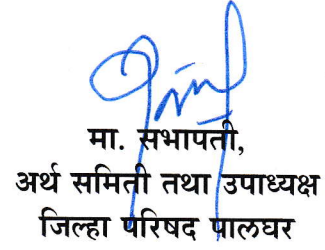 मा. सभापती,
अर्थ समिती तथा उपाध्यक्ष
जिल्हा परिषद पालघर